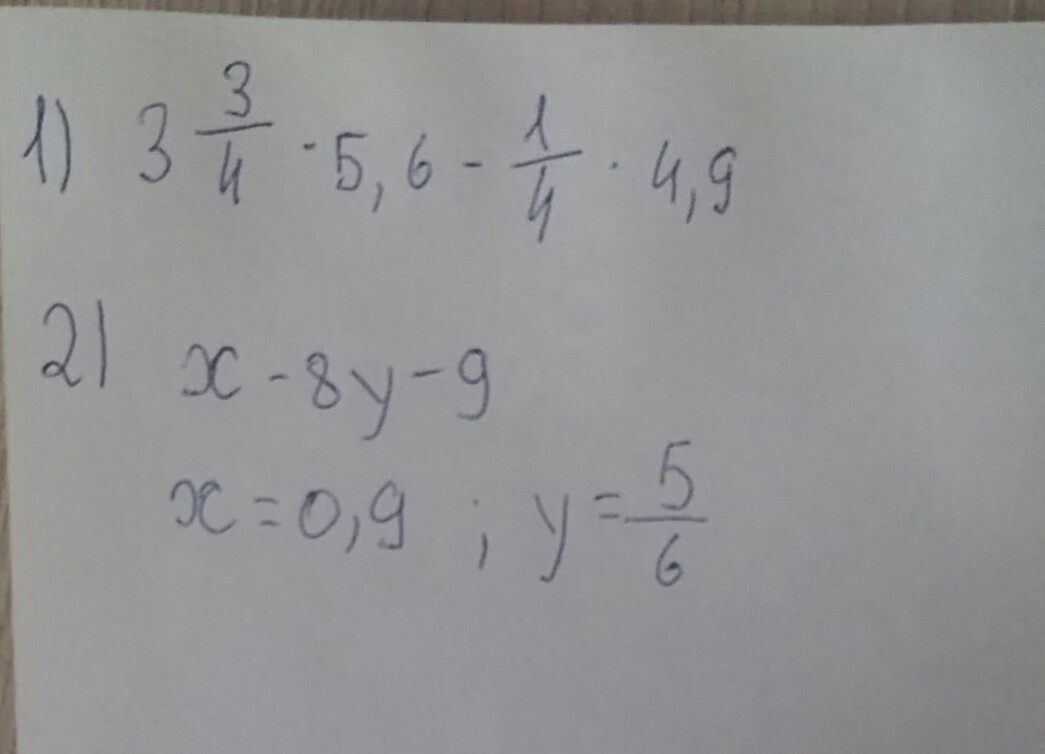 1) 3 3/4 · 5,6 - 1/4 · 4,9
2) x - 8y - 9
x = 0,9 ; y = 5/6